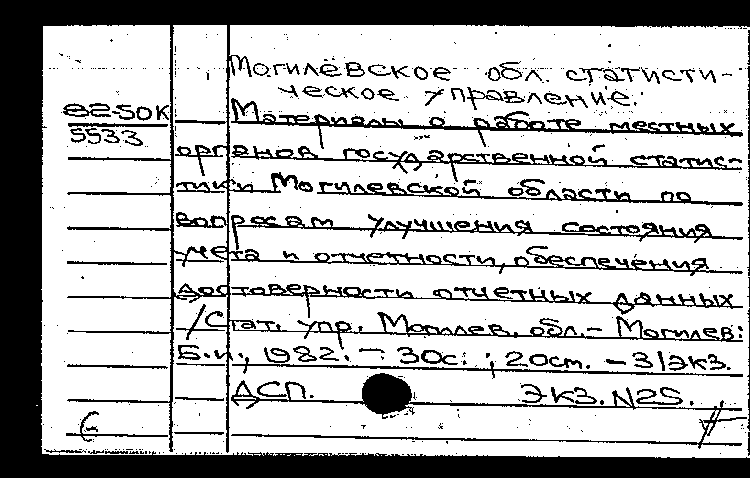 Могилёвское обл. статисти-
ческое управление.
82-50К
5533
Материалы о работе местных
органов государственной статис-
тики Могилевской области по
вопросам улучшения состояния
учета и отчетности, обеспечения
достоверности отчетных данных
/Стат. упр. Могилев. обл. – Могилев:
Б.и., 1982. – 30с. ; 20см. – 31экз.
ДСП. Экз. N25.